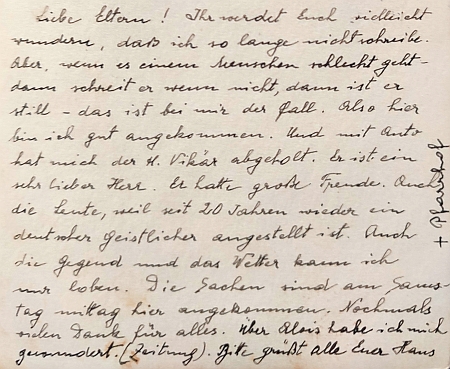 Liebe Eltern! Ihr werdet Euch vielleicht
wundern, daß ich so lange nicht schreibe.
Aber, wenn es einem Menschen schlecht geht –
dann schreit er wenn nicht, dann ist er
still – das ist bei mir der Fall. Also hier
bin ich gut angekommen. Und mit Auto
hat mich der H. Vikär abgeholt. Er ist ein
sehr lieber Herr. Er hatte große Freude. Auch
die Leute, weil seit 20 Jahren wieder ein
deutscher Geistlicher angestellt ist. Auch
die Gegend und das Wetter kann ich
nur loben. Die Sachen sind am Sams-
tag mittag hier angekommen. Nochmals
vielen Dank für alles. Über Alois habe ich mich
gewundert. (Zeitung). Bitte grüßt alle Euer Hans
+ Pfarrhof